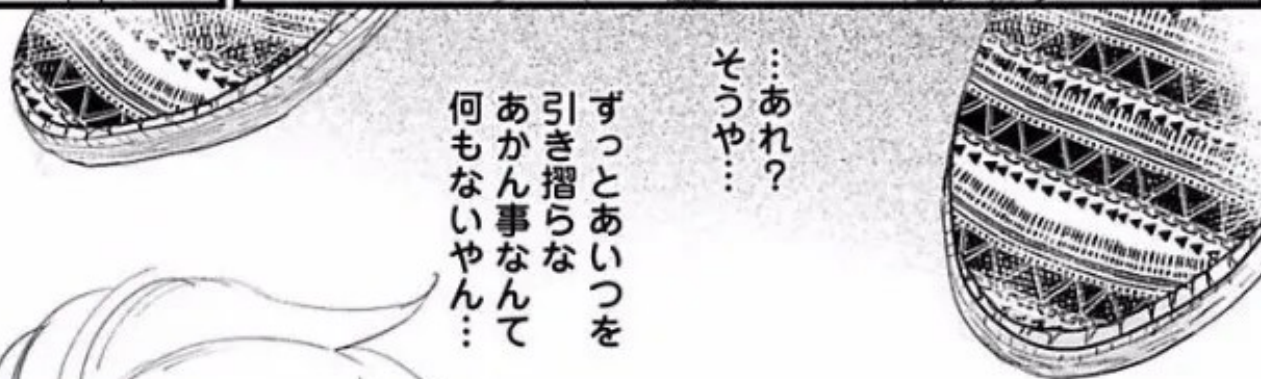 …あれ?
そうや…
ずっとあいつを
引き摺らな
あかん事なんて
何もないやん…